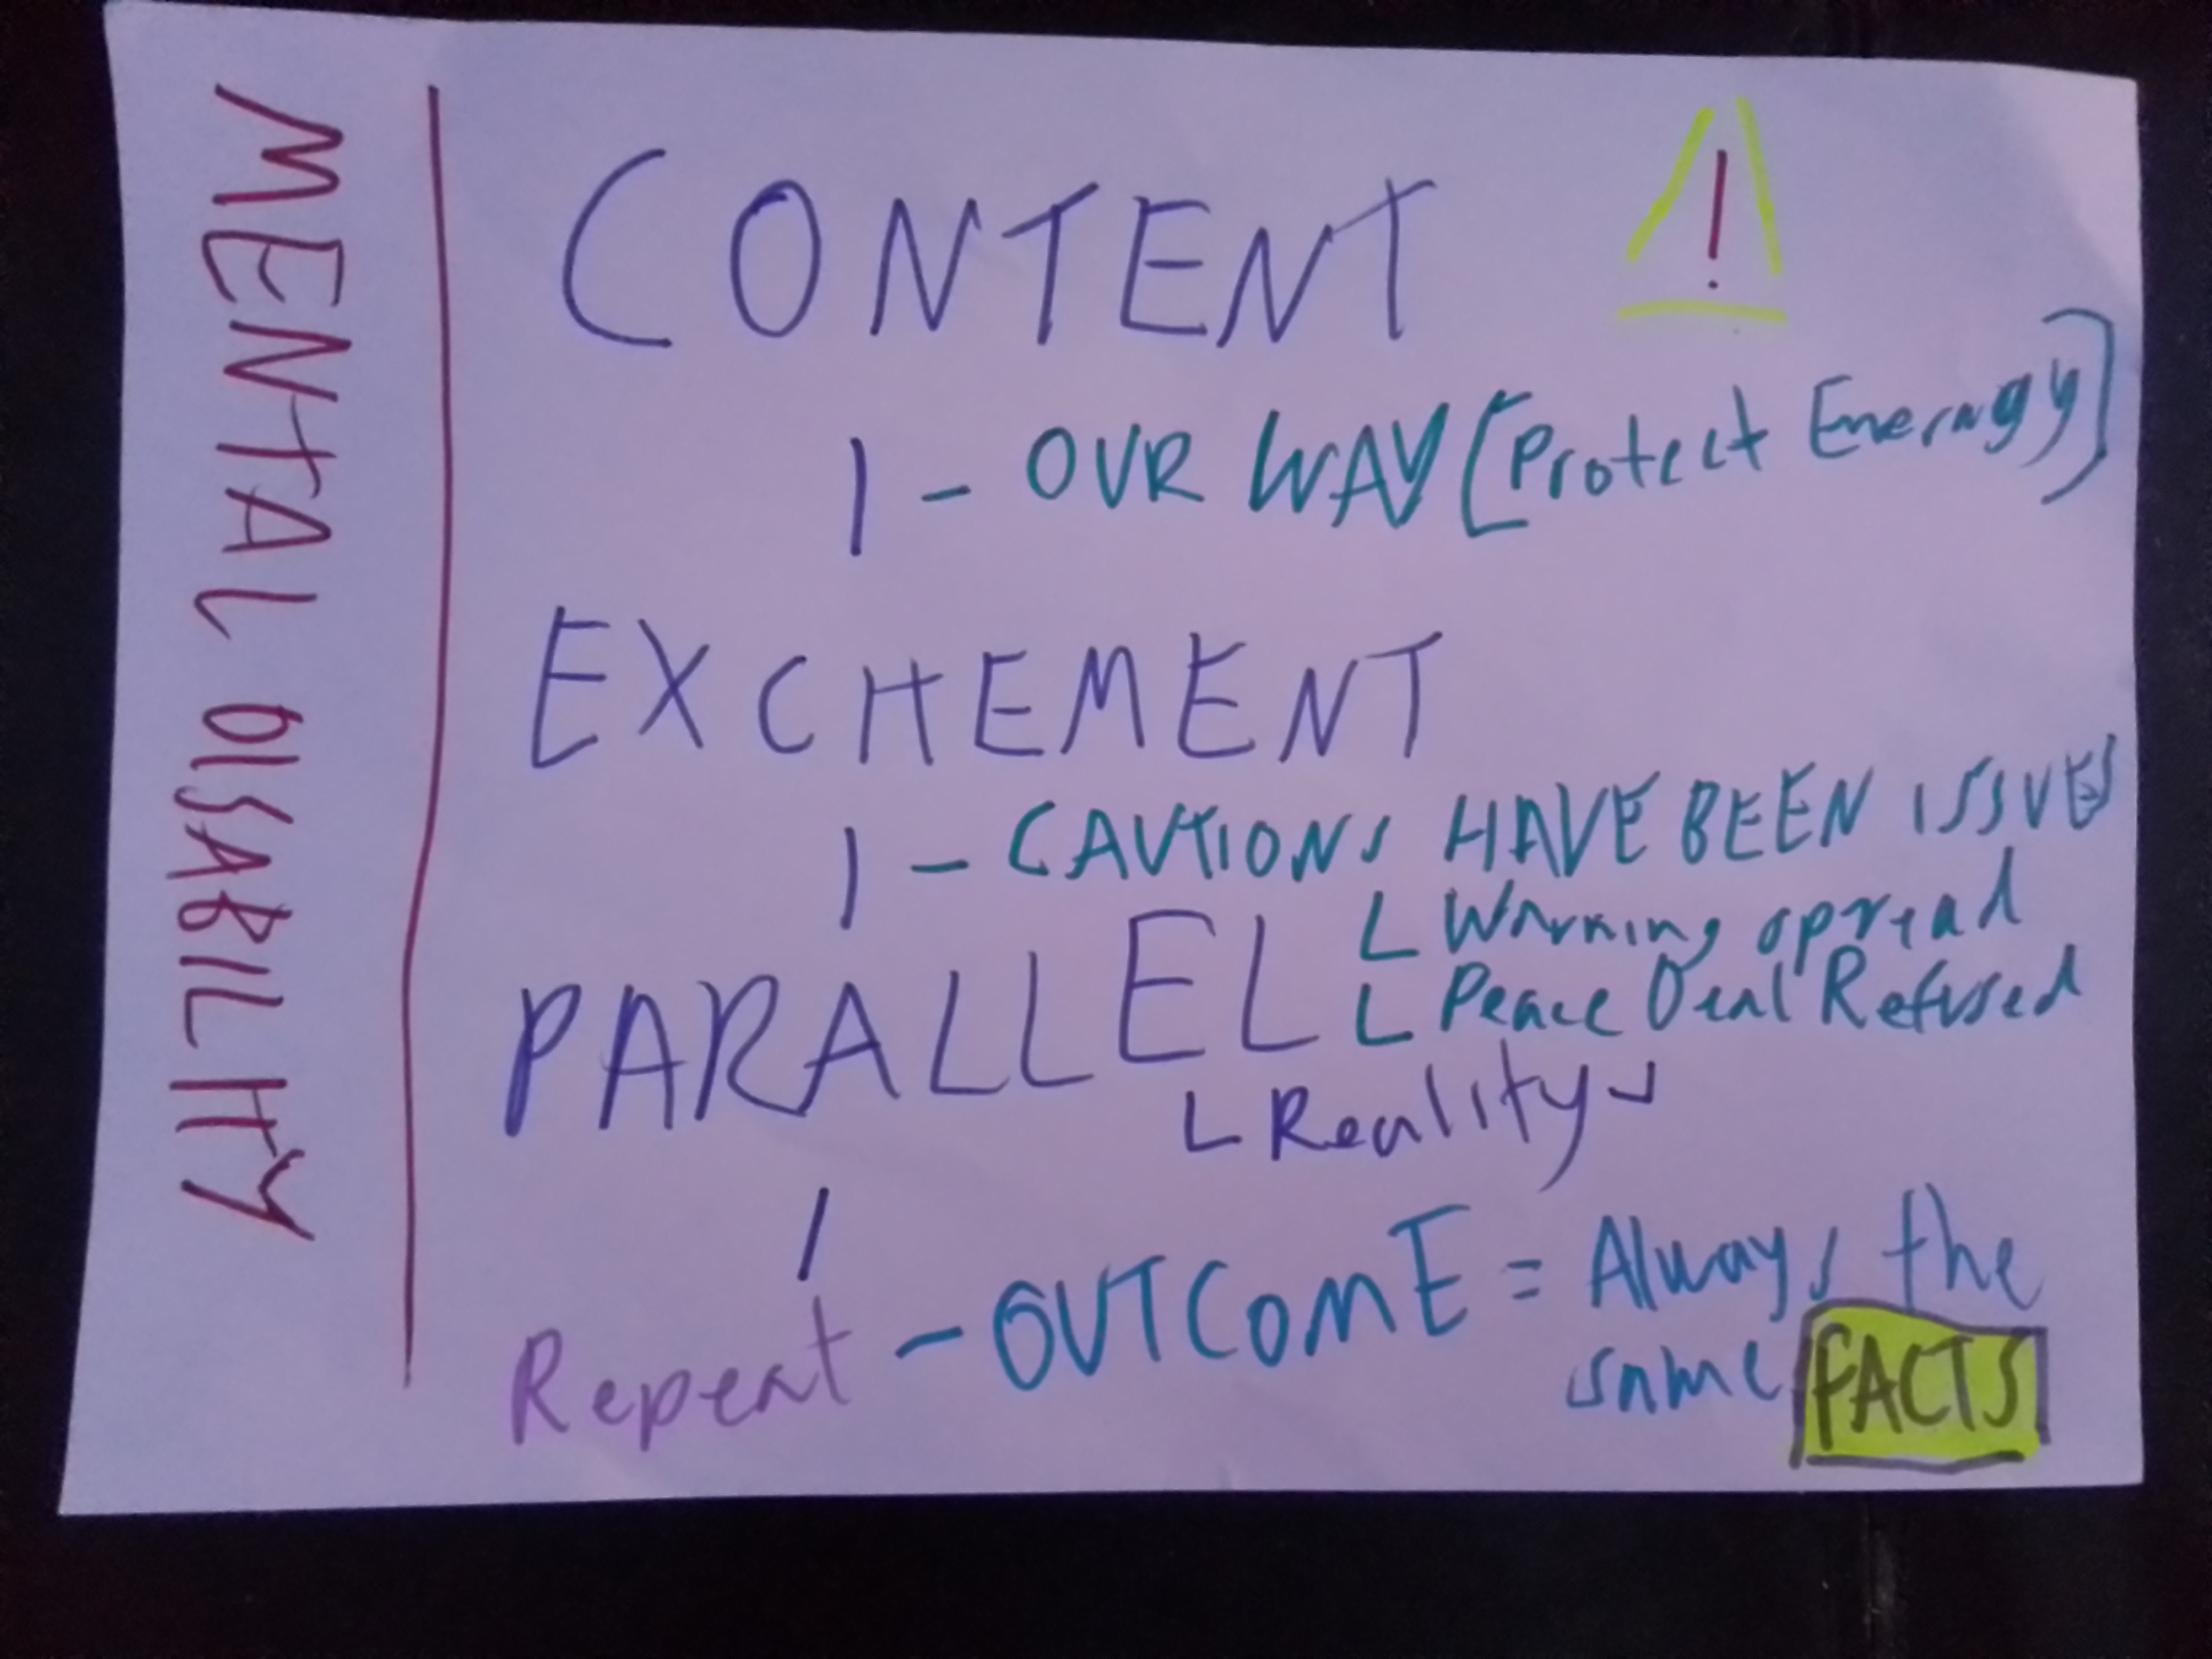 MENTAL DISABILITY
CONTENT !
- OUR WAY [Protect Energy]
EXCHEMENT
- CAUTIONS HAVE BEEN ISSUES
Warning spread
PARALLEL
Peace Deal Refused
Realitys
Repeat - OUTCOME = Always the
same FACTS